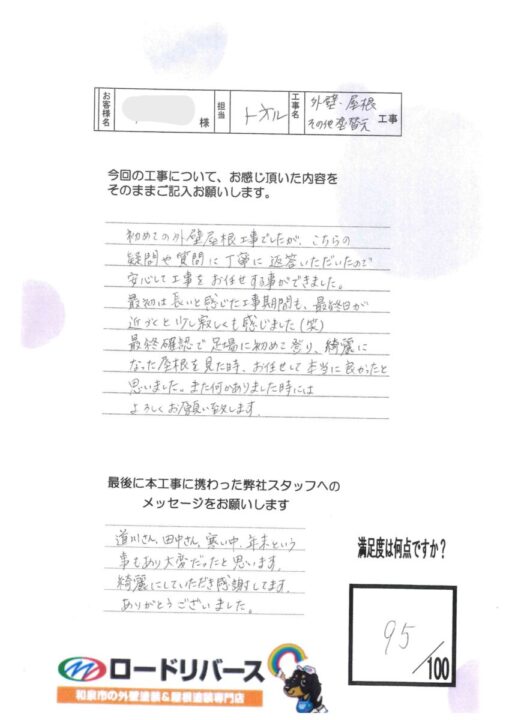 お客様名 様 担当 トオル 工事名 外壁・屋根
その他塗替え 工事
今回の工事について、お感じ頂いた内容を
そのままご記入お願いします。
初めての外壁屋根工事でしたが、こちらの
疑問や質問に丁寧に返答いただいたので
安心して工事をお任せする事ができました。
最初は長いと感じた工事期間も、最終日が
近づくと少し寂しくも感じました(笑)
最終確認で足場に初めて登り、綺麗に
なった屋根を見た時、お任せして本当に良かったと
思いました。また何かありました時には
よろしくお願い致します。
最後に本工事に携わった弊社スタッフへの
メッセージをお願いします
道川さん、田中さん、寒い中、年末という
事もあり大変だったと思います。
綺麗にしていただき感謝してます。
ありがとうございました。
満足度は何点ですか?
95/100
ロードリバース
和泉市の外壁塗装&屋根塗装専門店